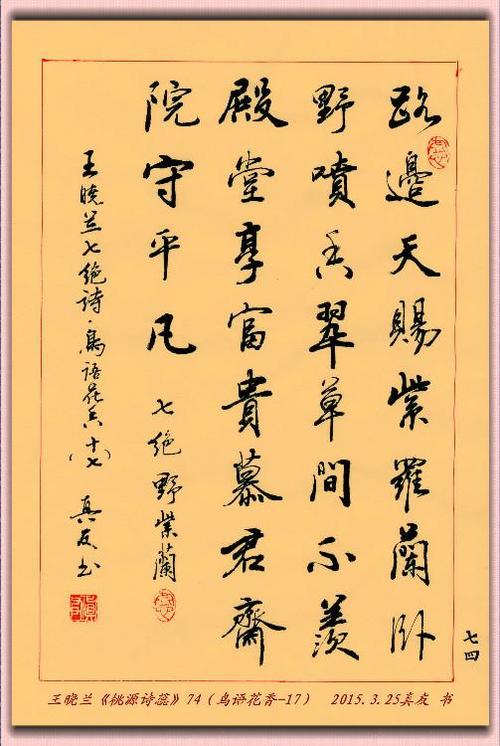 路邊天賜紫羅蘭卧
野噴香翠草間不羡
殿堂享富貴慕君齋
院守平凡 七绝野紫蘭
王曉兰七绝詩·鳥语花香(十七) 真友书
七四
王晓兰《桃源诗蕊》74（鸟语花香-17） 2015.3.25真友 书